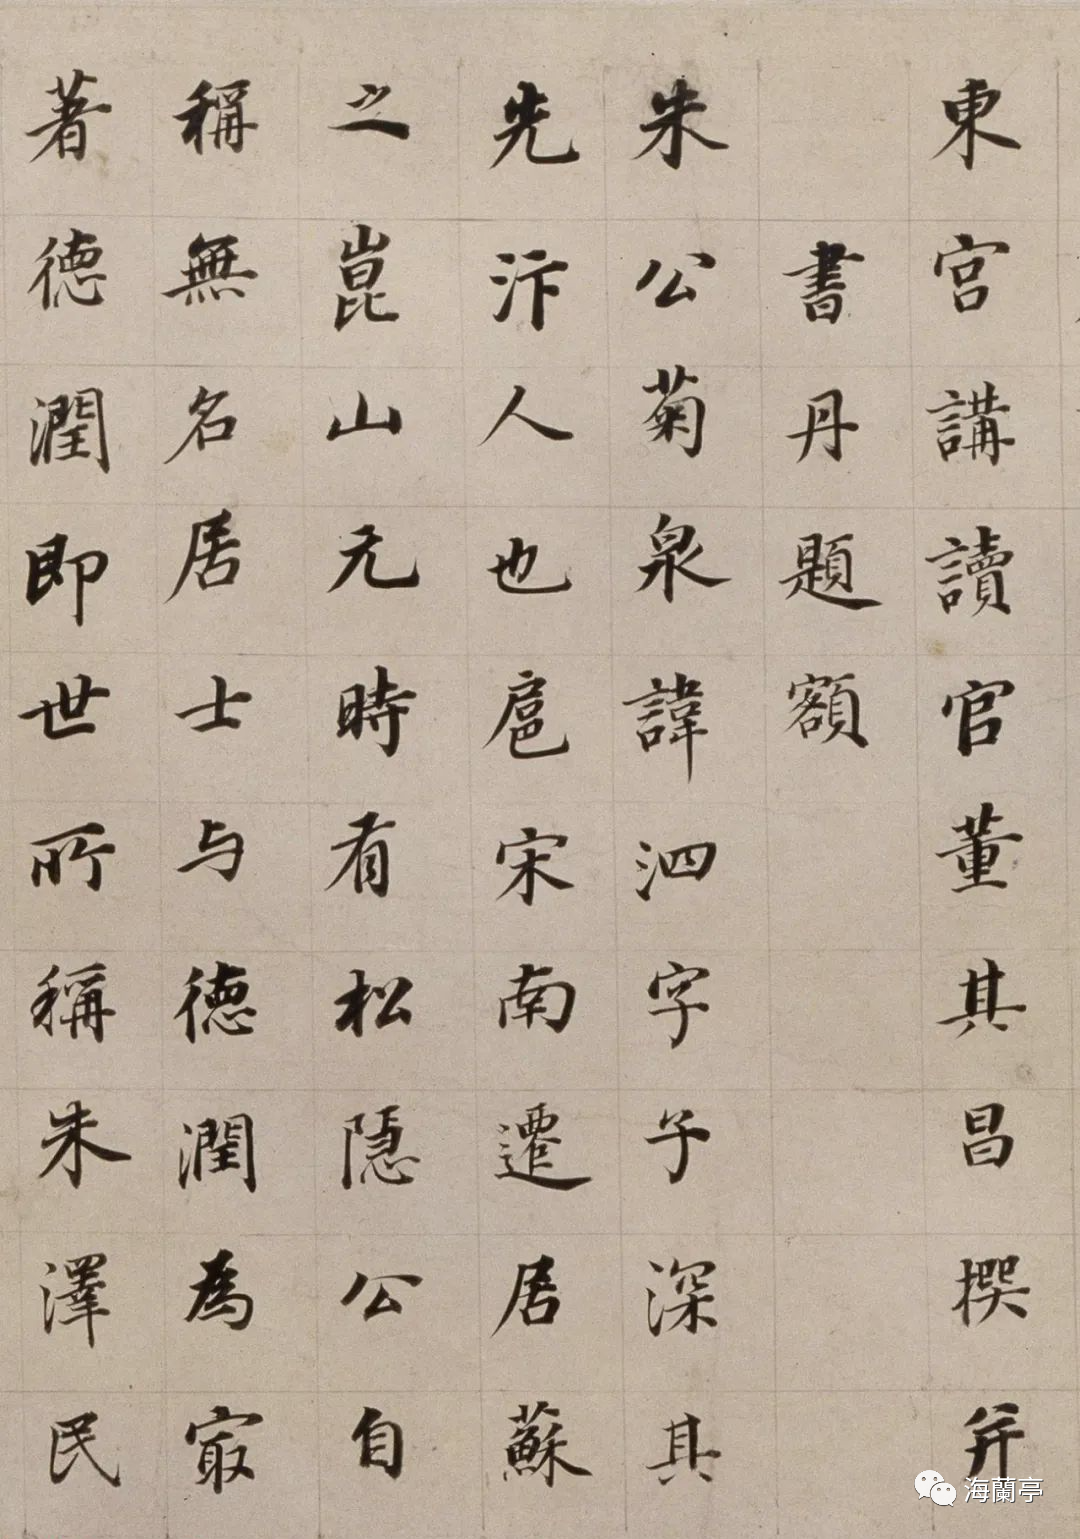 東宮講讀官董其昌撰并
書丹題額
朱公菊泉諱泗字子深其
先汴人也扈宋南遷居蘇
之崑山元時有松隱公自
稱無名居士与德潤為㝡
著德潤即世所稱朱澤民
海蘭亭